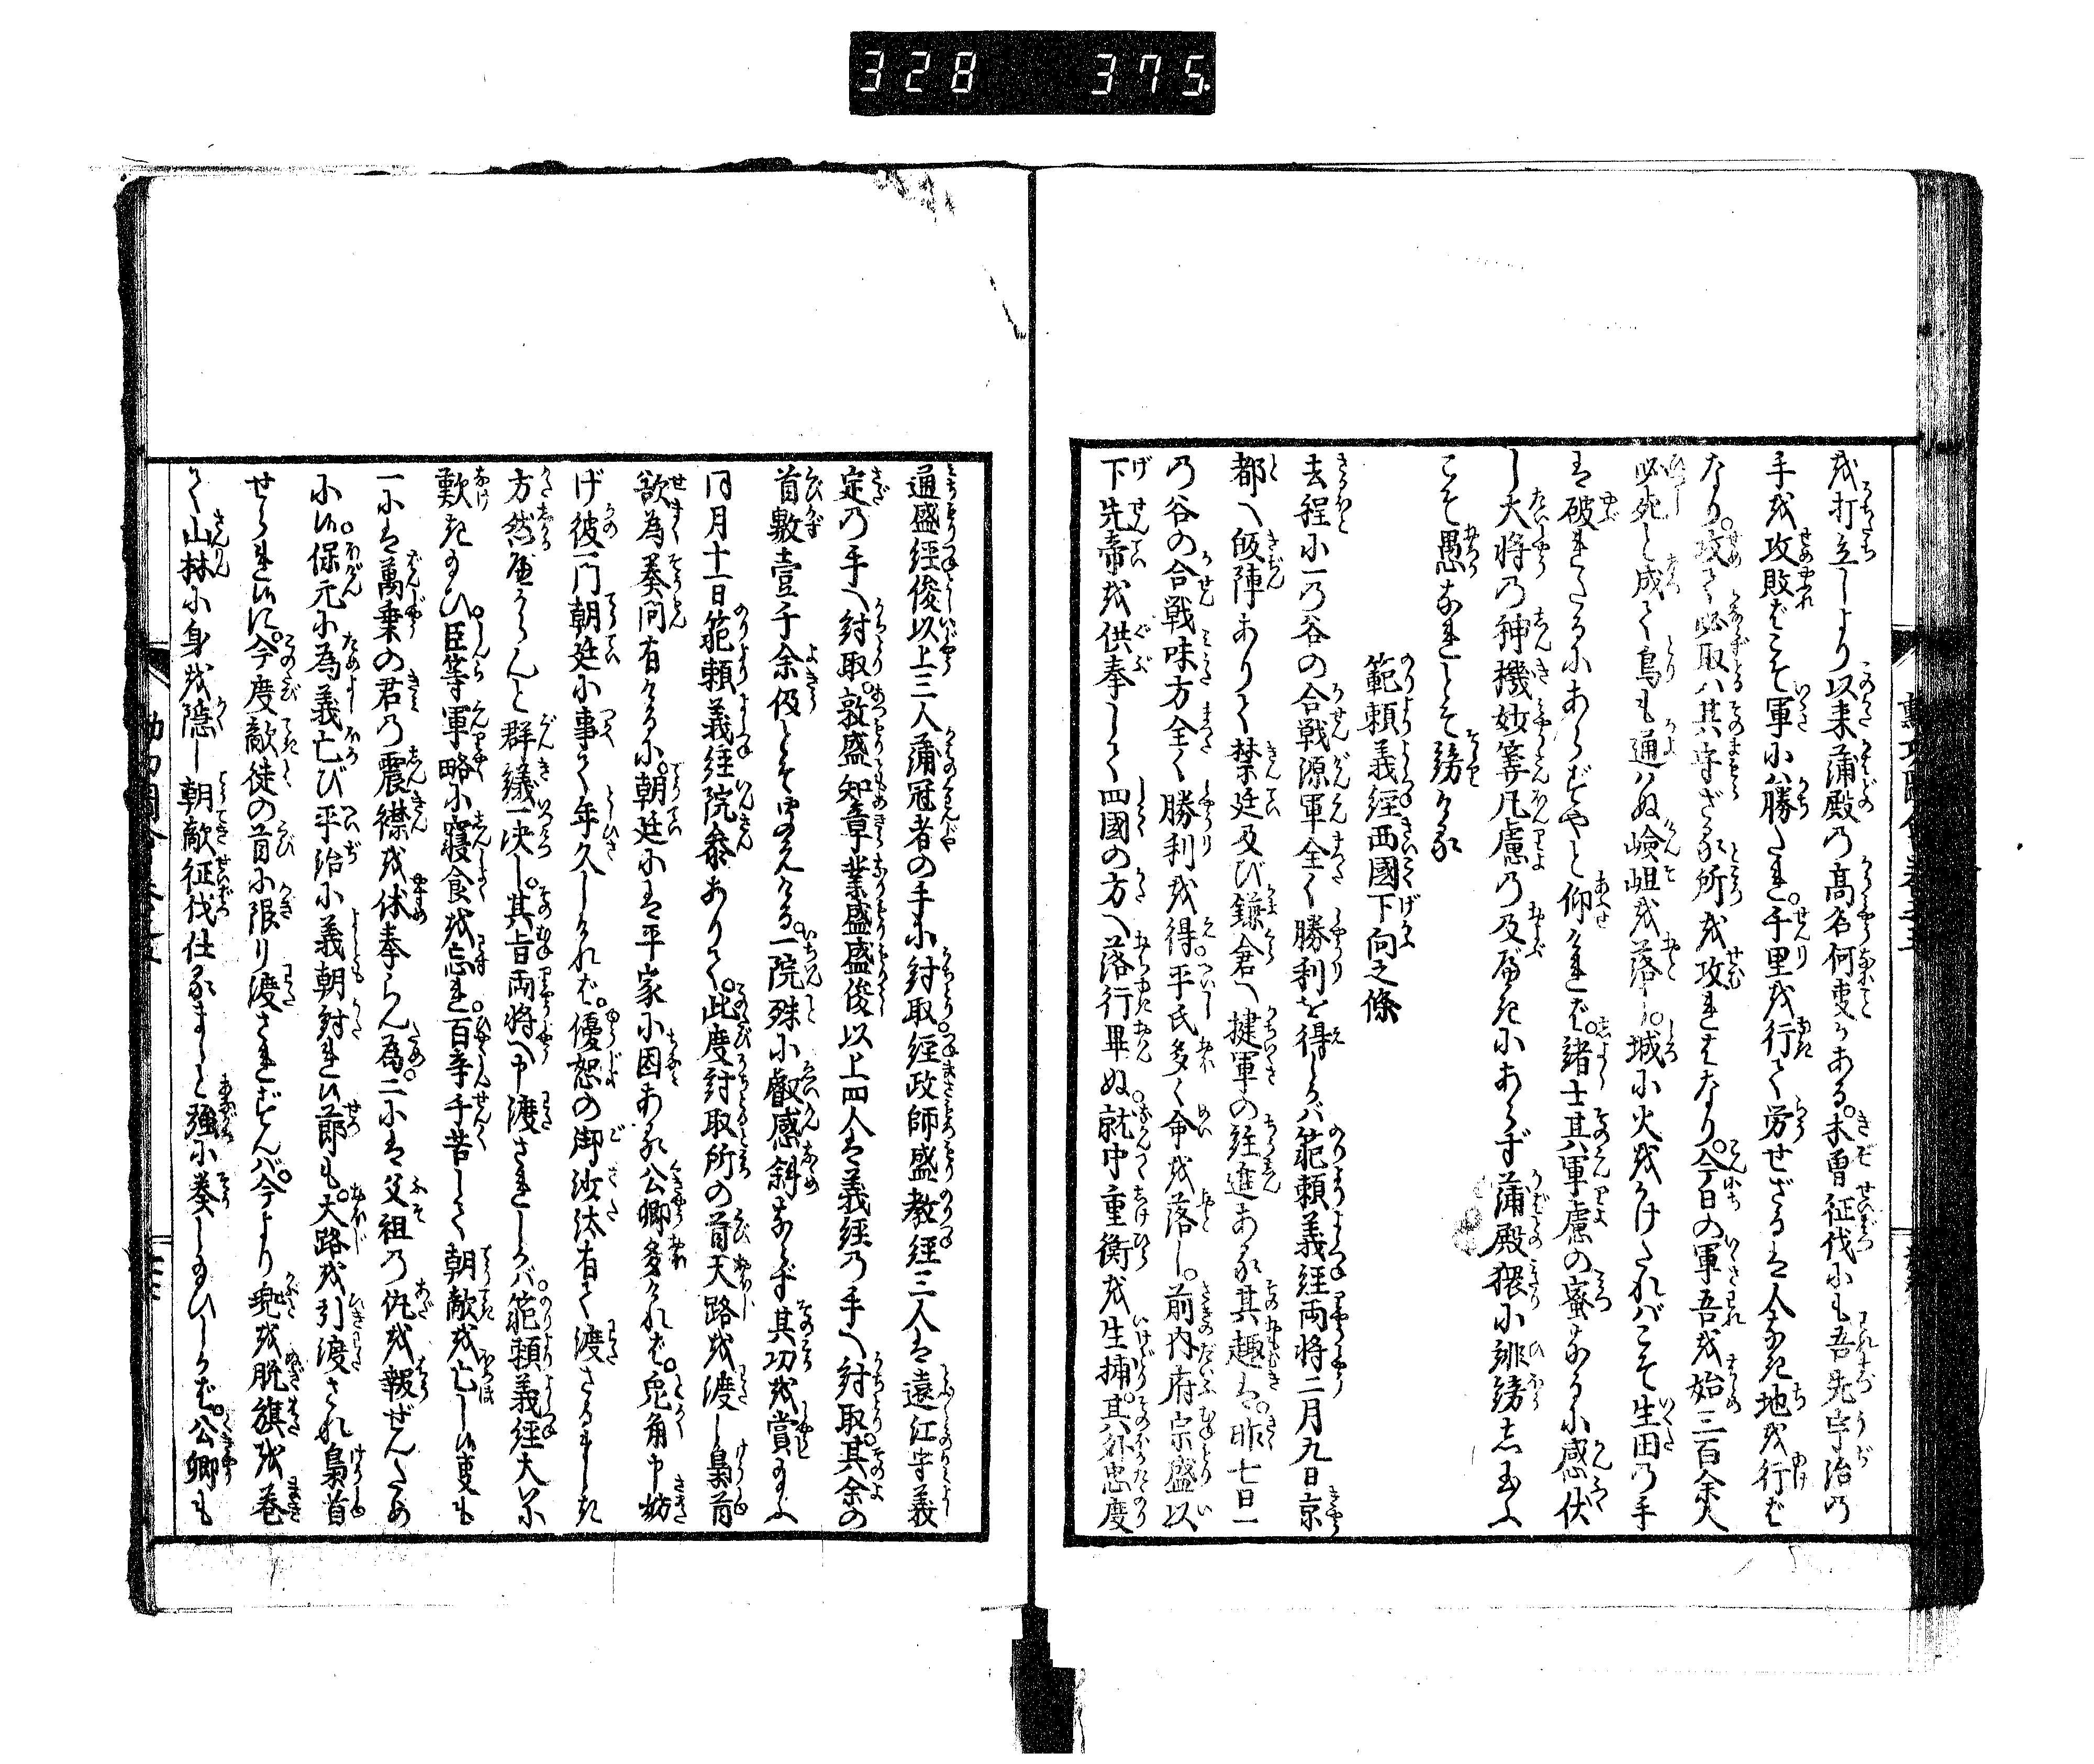 328 375
を打立しより以来蒲殿の高名何事かある。木曽征伐にも吾先宇治の
手を攻敗ばこそ軍に勝たれ。千里を行て労せざるは人なき地を行ば
なり。攻て必取ハ其守ざる所を攻ればなり。今日の軍吾を始三百余人
必死と成て鳥も通ハぬ嶮岨を落し。城に火をかけたれバこそ生田の手
は破れたるにあらずやと仰ければ。諸士其軍慮の蜜なるに感伏
し大将の神機妙筭凡慮の及べきにあらず蒲殿猥に誹謗し玉ふ
こそ愚なれとぞ謗ける
範頼義経西國下向之條
去程に一の谷の合戦源軍全く勝利を得しかバ範頼義経両将二月九日京
都へ皈陣ありて禁廷及び鎌倉へ捷軍の註進ある其趣は。昨七日一
の谷の合戦味方全く勝利を得。平氏多く命を落し。前内府宗盛以
下先帝を供奉して四國の方へ落行畢ぬ。就中重衡を生捕。其外忠度
通盛経俊以上三人蒲冠者の手に討取。経政師盛教経三人は遠江守義
定の手へ討取。敦盛知章業盛盛俊以上四人は義経の手へ討取。其余の
首數壹千余級とぞ聞えける。一院殊に叡感斜ならず其功を賞玉ふ
同月十一日範頼義経院参ありて。此度討取所の首大路を渡し梟首
欲為奏問有けるに。朝廷には平家に因ある公卿多かれば。兎角申妨
げ彼一門朝廷に事て年久しかれば。優恕の御沙汰有て渡さるまじき
方然べからんと群議一決し。其旨両将へ申渡されしかバ。範頼義経大に
歎き玉ひ。臣等軍略に寝食を忘れ。百辛千苦して朝敵を亡し候事も
一には萬乗の君の震襟を休奉らん為。二には父祖の仇を報ぜんため
に候。保元に為義亡び平治に義朝討れし節も。大路を引渡され梟首
せられ候に。今度敵徒の首に限り渡されずんバ。今より兜を脱旗を巻
て山林に身を隠し朝敵征伐仕るまじと強に奏し玉ひしかば。公卿も